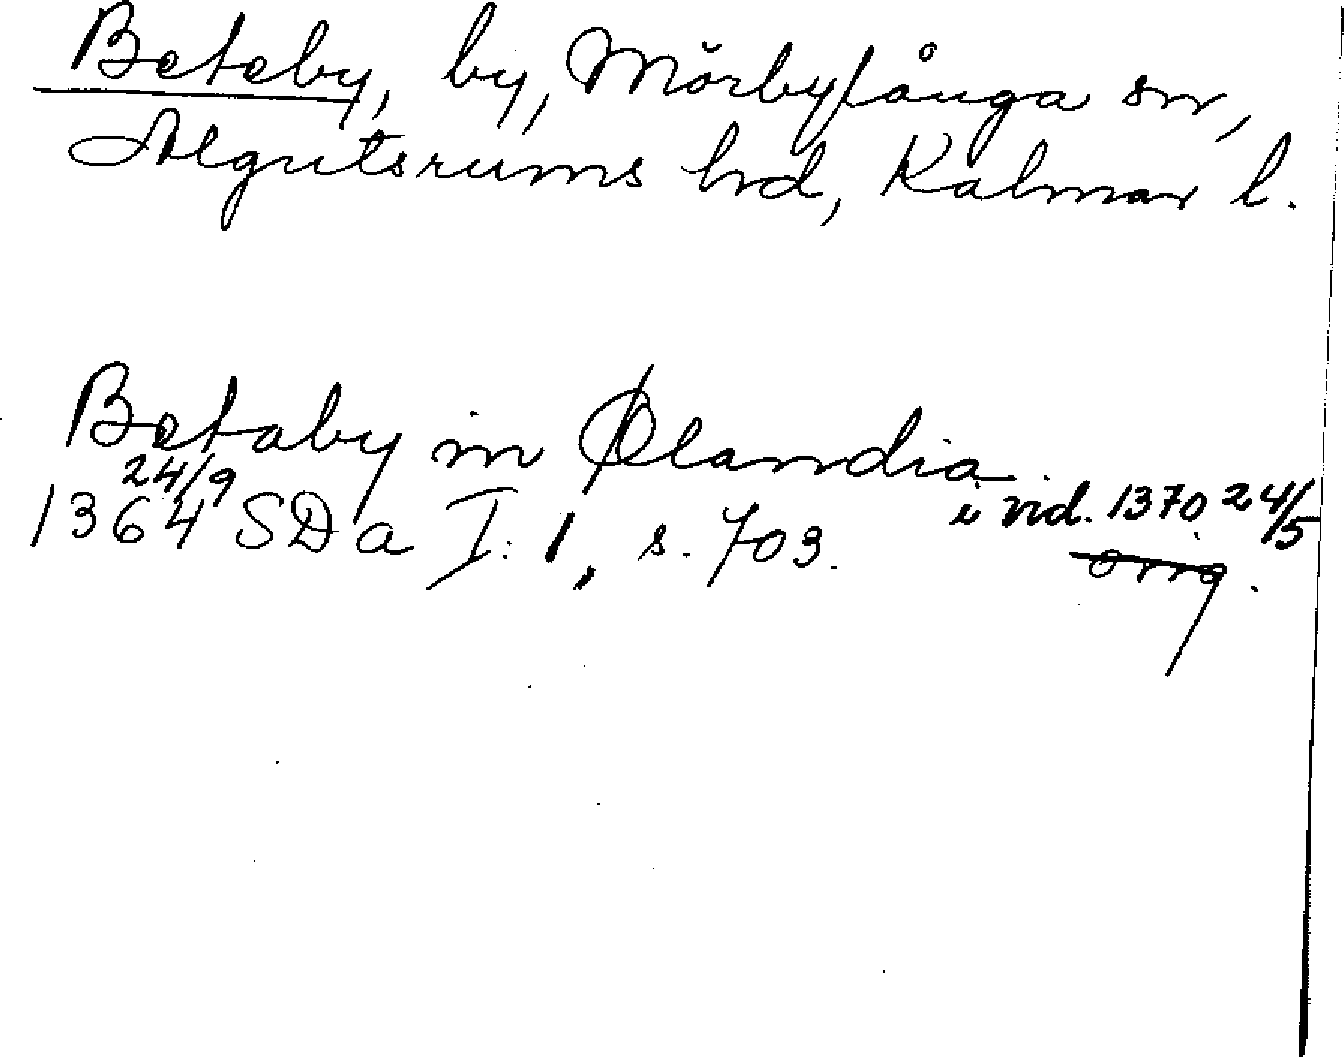 Beteby, by, Mörbylånga sn,
Algutsrums hd, Kalmar l.
Betaby in Ølandia
24/9 i vid. 1370 24/5
1364 SD a I: 1, s. 703. orig.